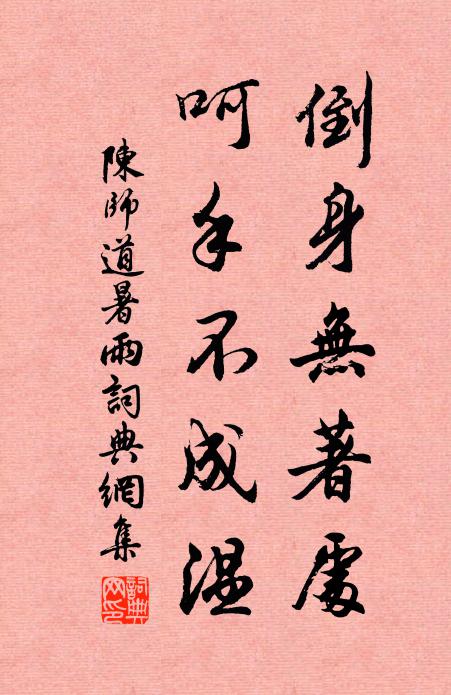 倒身無著處
呵手不成温
陳師道暑雨詞典網集
詞典網印